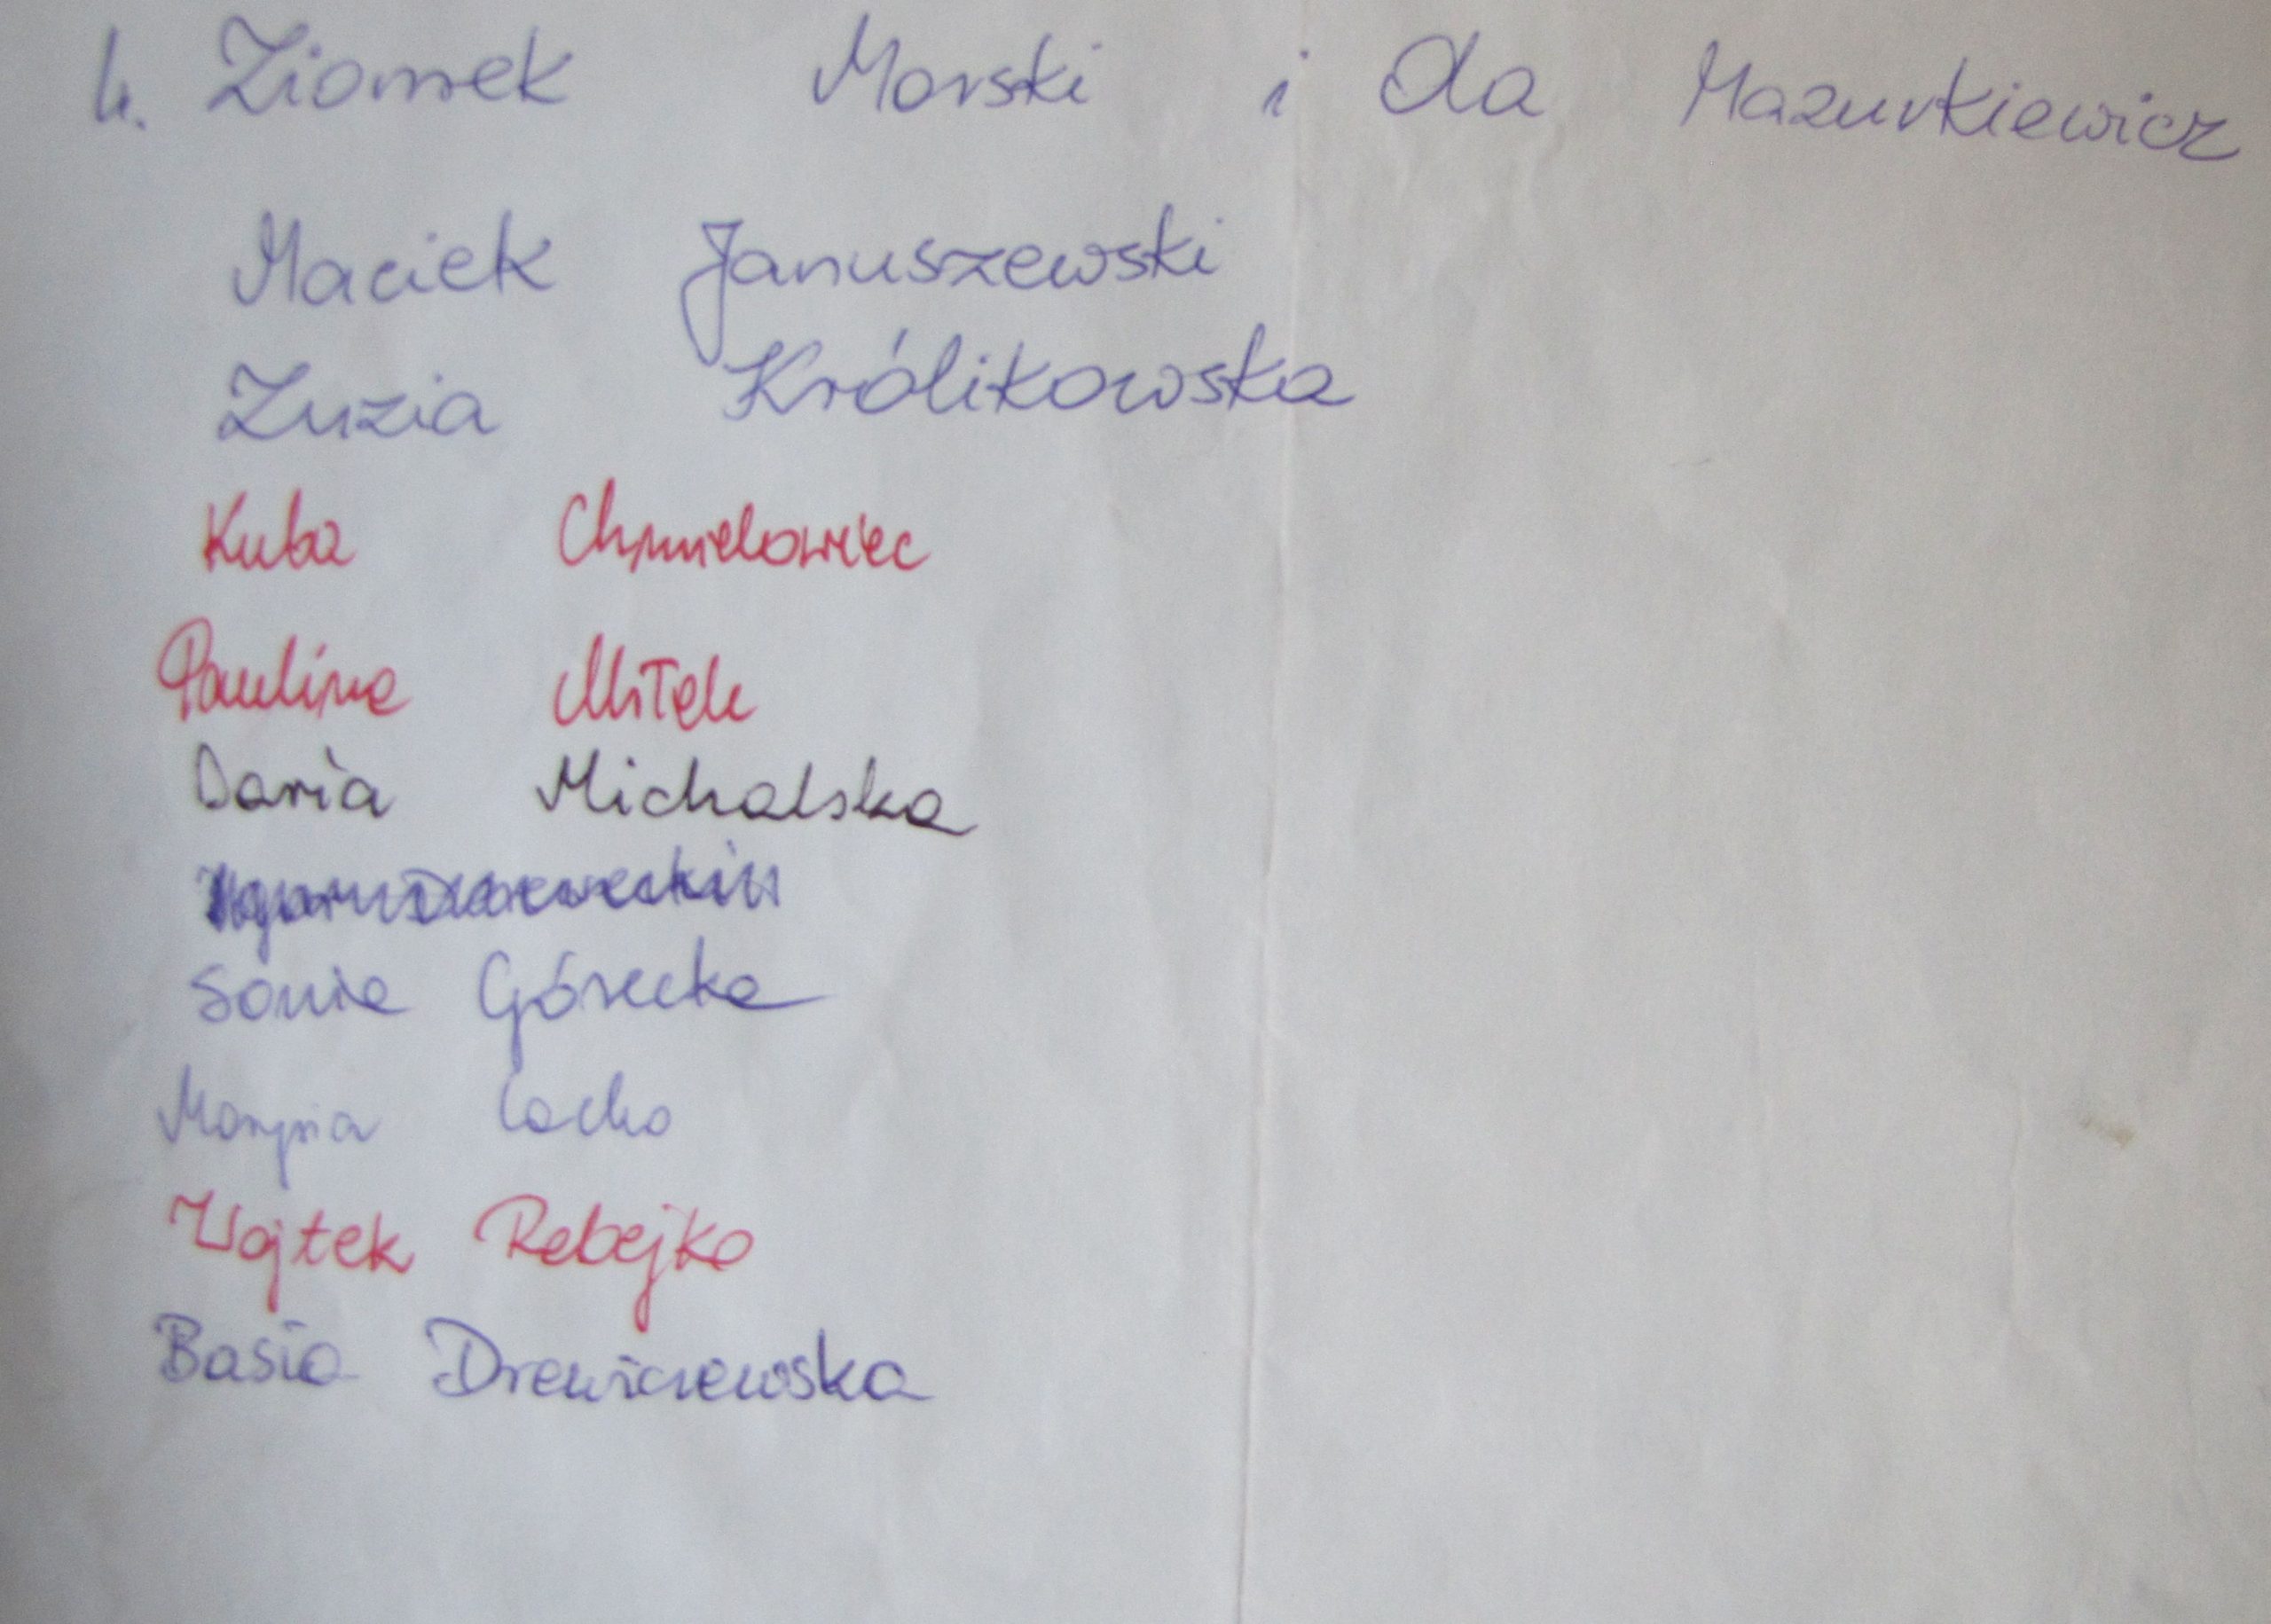 4. Ziomek Morski i Ola Mazurkiewicz
Maciek Januszewski
Zuzia Królikowska
Kuba Chmielowiec
Paulina Mitek
Daria Michalska
Sonia Górecka
Marysia Locha
Wojtek Rebejko
Basia Drewiczewska